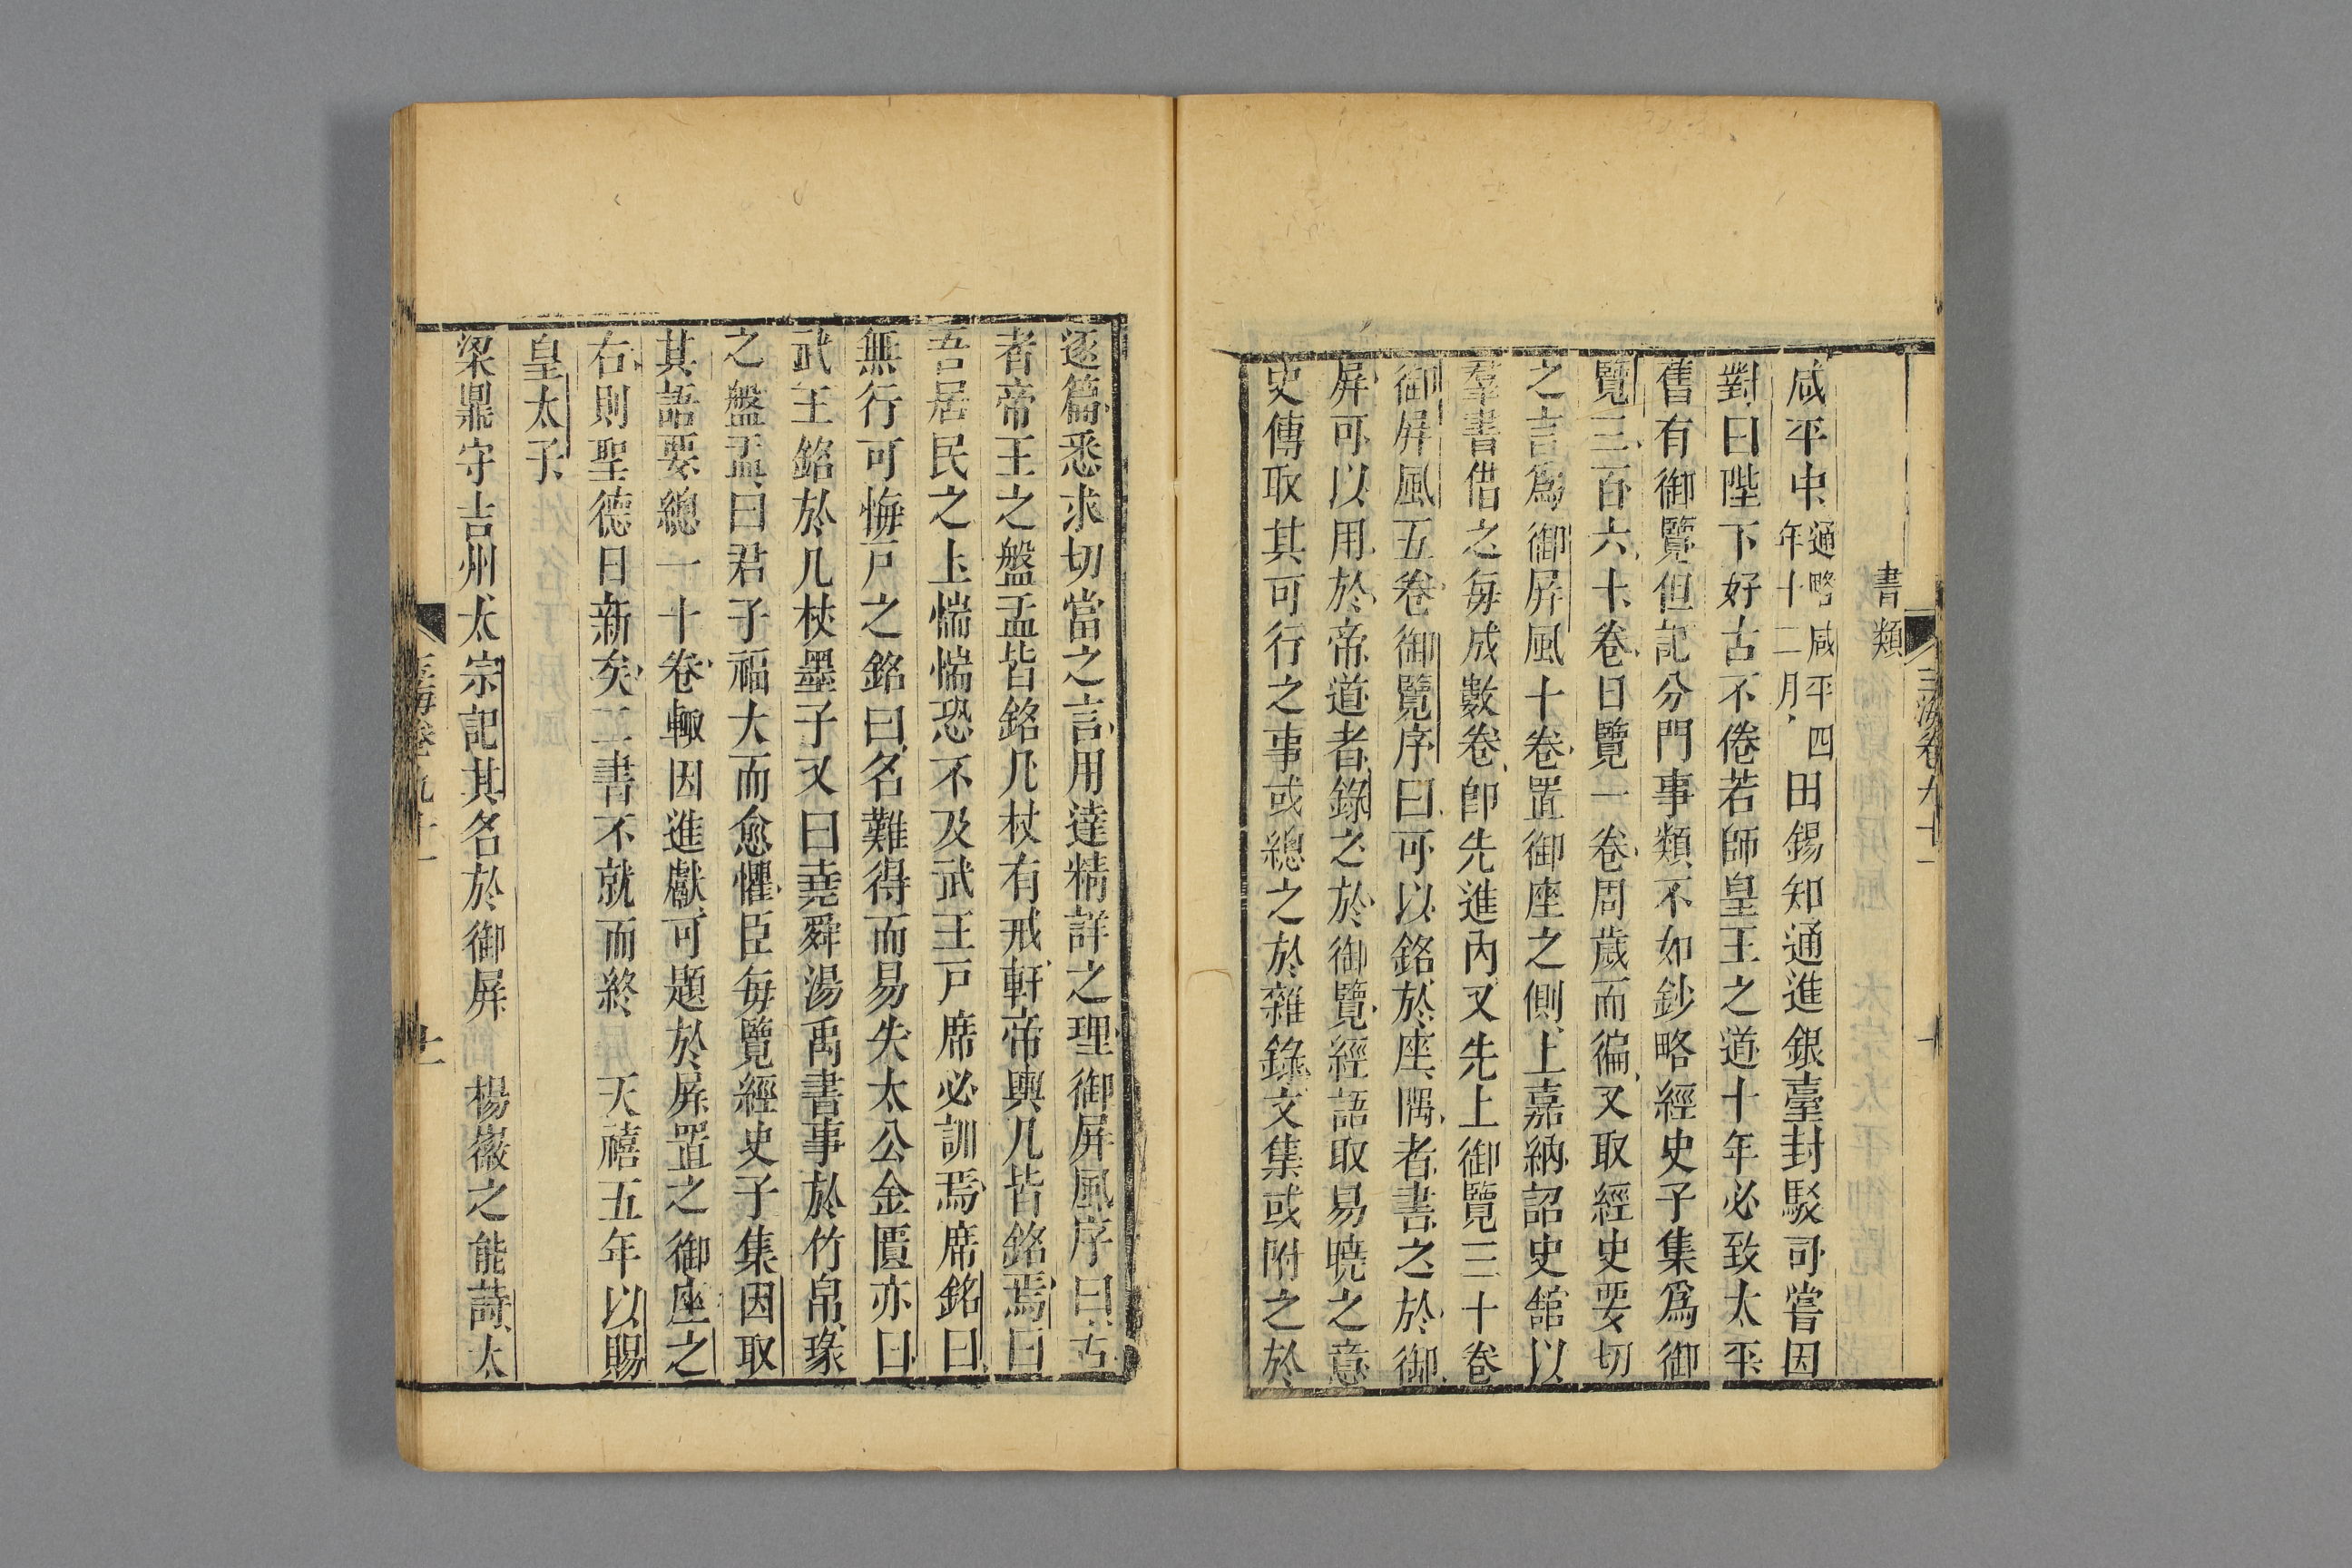 玉海卷九十一
書類
咸平中通略咸平四年十二月田錫知通進銀臺封駁司嘗因
對曰陛下好古不倦若師皇王之道十年必致太平
舊有御覽但記分門事類不如鈔略經史子集爲御
覽三百六十卷日覽一卷周歲而徧又取經史要切
之言爲御屏風十卷置御座之側上嘉納詔史館以
羣書借之每成數卷卽先進內又先上御覽三十卷
御屏風五卷御覽序曰可以銘於座隅者書之於御
屏可以用於帝道者錄之於御覽經語取易曉之意
史傳取其可行之事或總之於雜錄文集或附之於
逐篇悉求切當之言用達精詳之理御屏風序曰古
者帝王之盤盂皆銘几杖有戒軒帝輿几皆銘焉曰
吾居民之上惴惴恐不及武王戸席必訓焉席銘曰
無行可悔戸之銘曰名難得而易失太公金匱亦曰
武王銘於几杖墨子又曰堯舜湯禹書事於竹帛瑑
之盤盂曰君子福大而愈懼臣每覽經史子集因取
其語要總一十卷輙因進獻可題於屏置之御座之
右則聖德日新矣二書不就而終 天禧五年以賜
皇太子
梁鼎守吉州太宗記其名於御屏 楊徽之能詩太
玉海卷九十一
十一